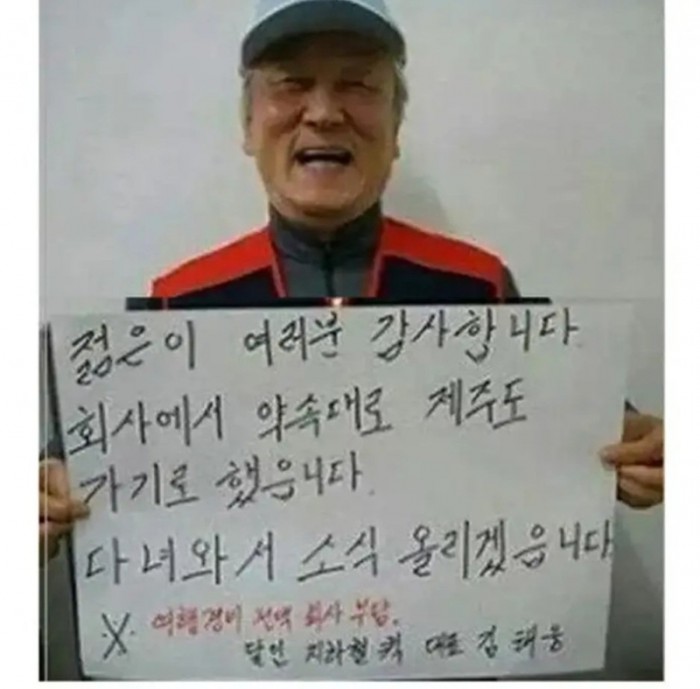 젊은이 여러분 감사합니다.
회사에서 약속대로 제주도
가기로 했읍니다.
다녀와서 소식 올리겠읍니다
※ 여행경비 전액 회사 부담.
달인 지하철 퀵 대표 김태웅